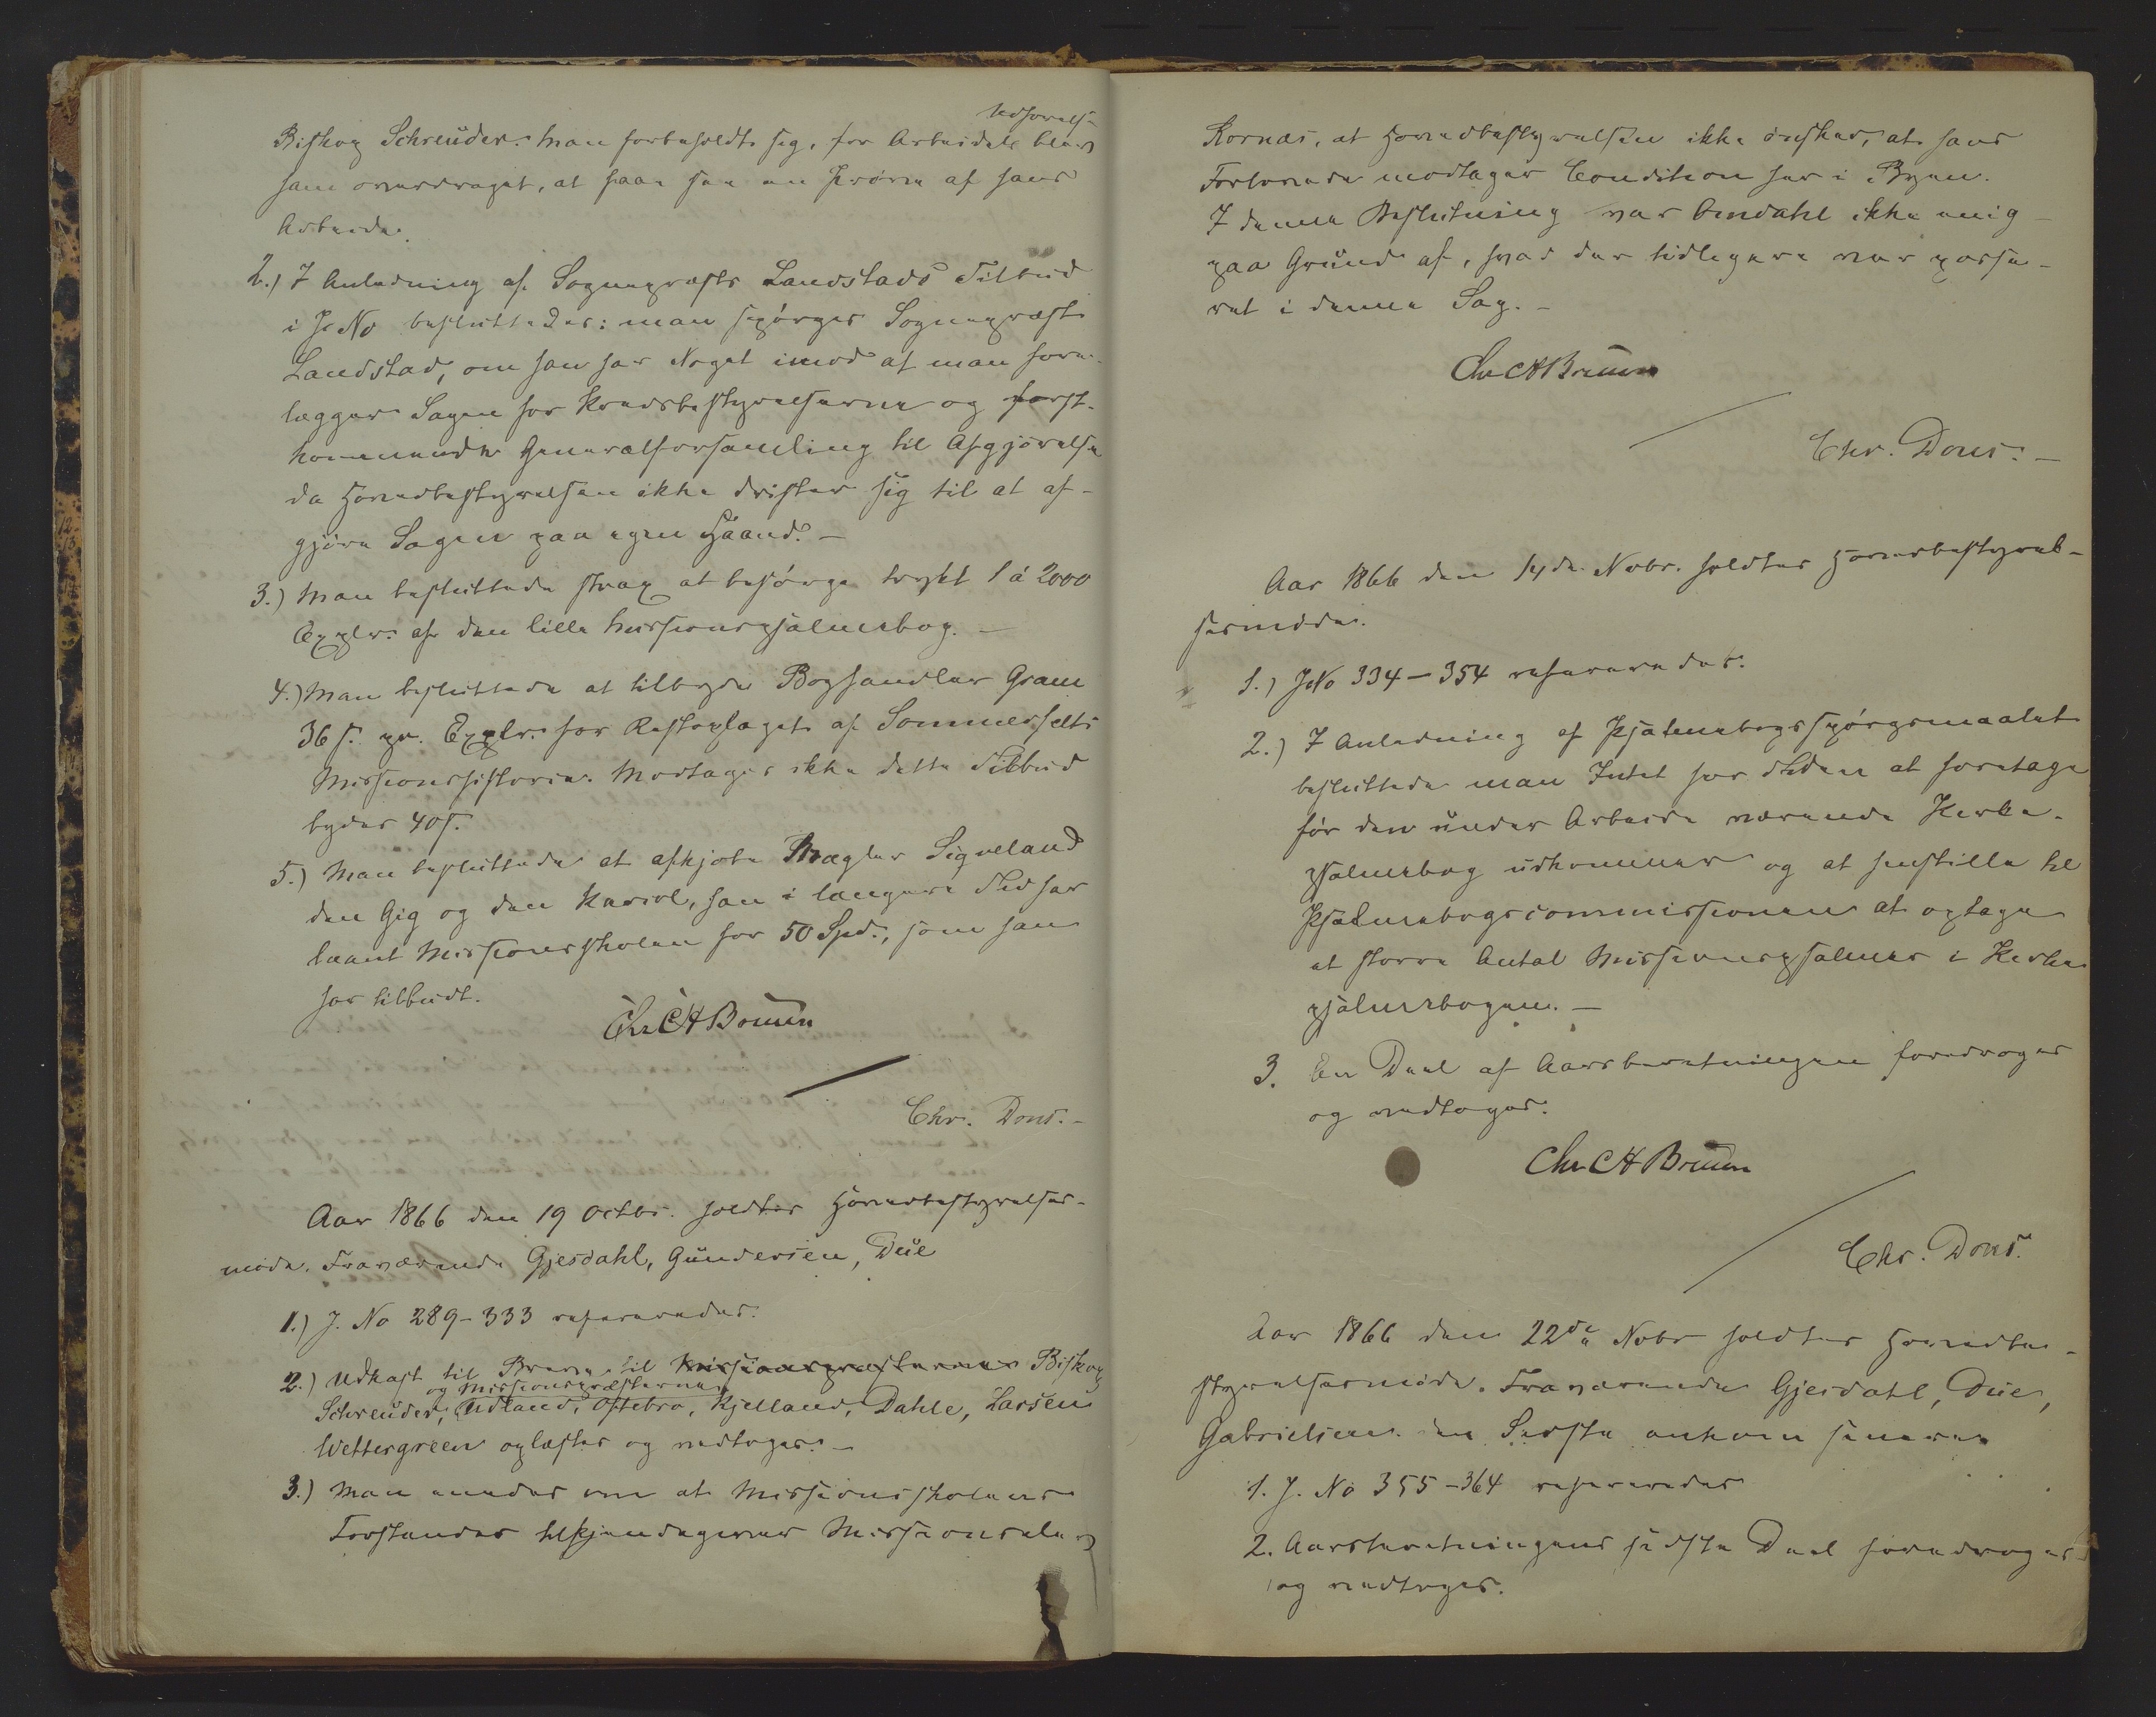 Udførelse
Biskop Schreuder. Man forbeholdt sig, før Arbeidets blev
ham overdraget, at faae see en Prøve af hans
Arbeide.
2.) I Anledning af Sognepræst Landstads Tilbud
i J. No besluttedes: man spørger Sognepræst
Landstad, om han har Noget imod at man fore-
lægger Sagen for Kredsbestyrelserne og først-
kommende Generalforsamling til Afgjørelse
da Hovedbestyrelsen ikke drister sig til at af-
gjøre Sagen paa egen Haand. —
3.) Man besluttede strax at besørge trykt 1 á 2000
Explr. af den lille Missionspsalmebog. —
4.) Man besluttede at tilbyde Boghandler Gram
36 s. pr. Explr. for Restoplaget af Sommerfelts
Missionshistorie. Modtages ikke dette Tilbud
bydes 40 s.
5.) Man besluttede at afkjøbe Mægler Sigveland
den Gig og den Karriol, han i længere Tid har
laant Missionsskolen for 50 Spd., som han
har tilbudt.
Chr C H Bruun
Chr. Dons. —
Aar 1866 den 19 Octbr. holdtes Hovedbestyrelses-
møde. Fraværende Gjesdahl, Gundersen, Due
1.) J. No 289-333 refereredes.
2.) Udkast til Breve til Missionspræsterne Biskop
og Missionspræsterne
Schreuder, Udland, Oftebro, Kjelland, Dahle, Larsen
Wettergreen oplæstes og vedtoges. —
3.) Man enedes om at Missionsskolens
Forstander tilkjendegiver Missionselev
Kornæs, at Hovedbestyrelsen ikke ønsker, at hans
Forlovede modtager Condition her i Byen.
I denne Beslutning var Omdahl ikke enig
paa Grund af, hvad der tidligere var passe-
ret i denne Sag. —
Chr C H Bruun
Chr. Dons. —
Aar 1866 den 14de Nobr. holdtes Hovedbestyrel-
sesmøde.
1.) J No 334-354 refereredes.
2.) I Anledning af Psalmebogsspørgsmaalet
besluttede man Intet for Tiden at foretage
før den under Arbeide værende Kirke-
psalmebog udkommer og at henstille til
Psalmebogscommissionen at optage
et større Antal Missionspsalmer i Kirke
psalmebogen. —
3. En Deel af Aarsberetningen foredroges
og vedtoges.
Chr C H Bruun
Chr. Dons.
Aar 1866 den 22de Nobr holdtes Hovedbe-
styrelsesmøde. Fraværende Gjesdahl, Due,
Gabrielsen. den Sidste ankom senere
1. J. No 355-364 refereredes
2. Aarsberetningens sidste Deel foredroges
og vedtoges.